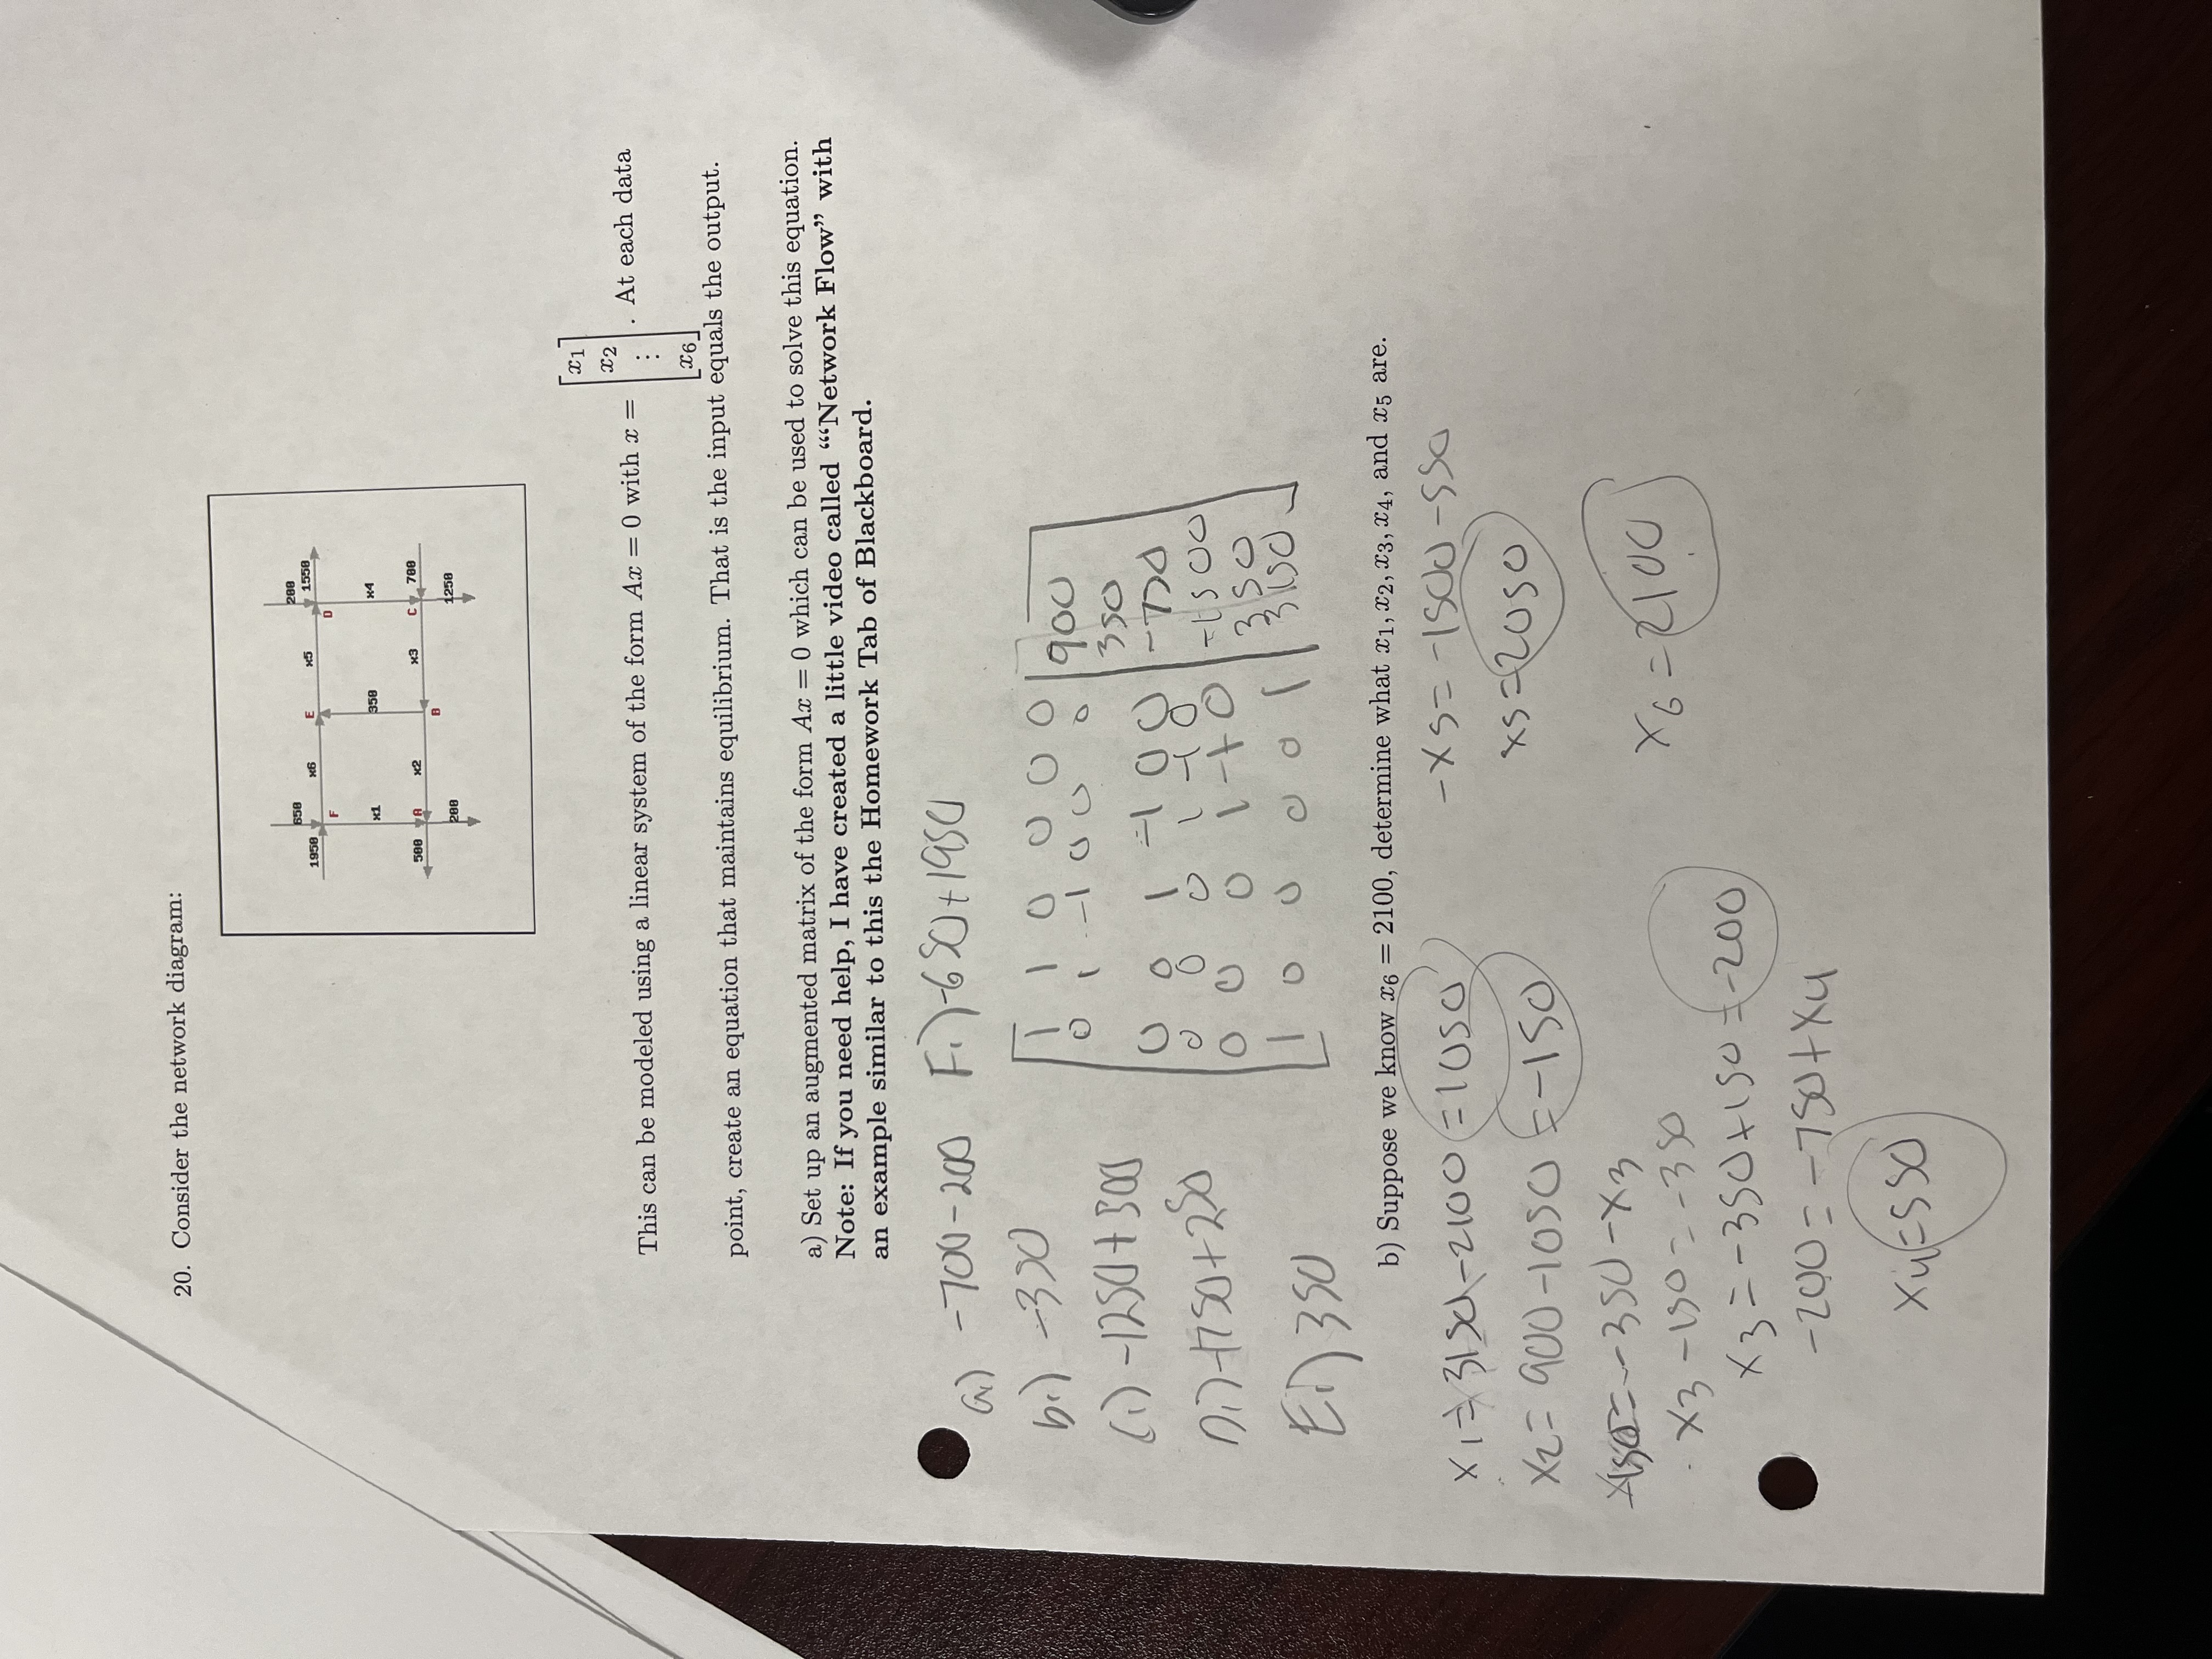 20. Consider the network diagram:
650 200
1950 x6 E x5 1550
F D
x1 350 x4
500 A x2 x3 C 700
B
200 1250
This can be modeled using a linear system of the form Ax = 0 with x = [x1 x2 ⋮ x6]. At each data
point, create an equation that maintains equilibrium. That is the input equals the output.
a) Set up an augmented matrix of the form Ax = 0 which can be used to solve this equation.
Note: If you need help, I have created a little video called “‘Network Flow” with
an example similar to this the Homework Tab of Blackboard.
a.) -700-200 F.) -650+1950
b.) -350
C.) -1250+500
D.) -1750+250
E.) 350
1 1 0 0 0 0 | 900
0 1 -1 0 0 0 | 350
0 0 1 -1 0 0 | -750
0 0 0 1 -1 0 | -1500
0 0 0 1 -1 0 | 350
1 0 0 0 0 1 | 3150
b) Suppose we know x6 = 2100, determine what x1, x2, x3, x4, and x5 are.
x1 = 3150-2100 = 1050
x2 = 900-1050 = -150
= -350-x3
x3-150 = -350
x3 = -350+150 = -200
-200 = -750+x4
x4 = 550
-x5 = -1500-550
x5 = 2050
x6 = 2100